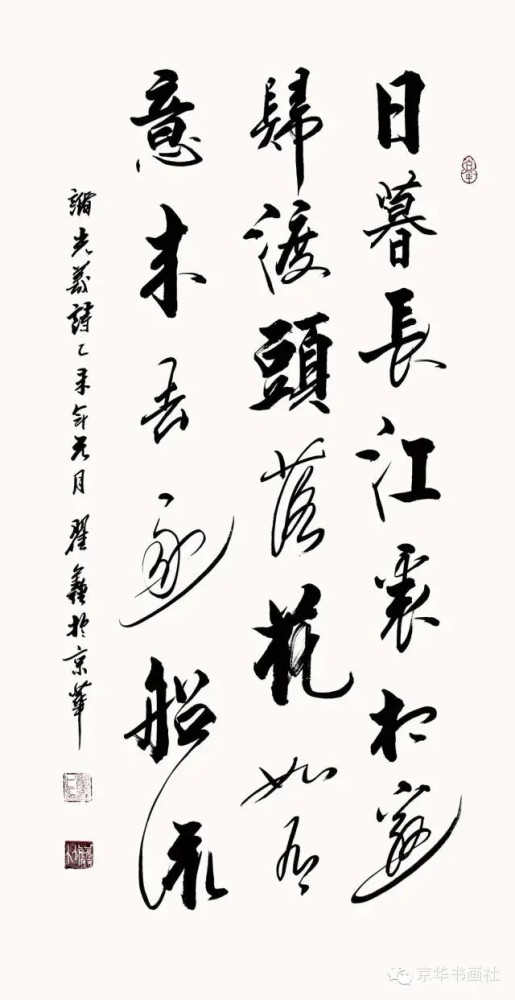 日暮長江裏相邀
歸渡頭落花如有
意来去逐船流
儲光羲詩乙未年元月翟鑫於京華
京华书画社